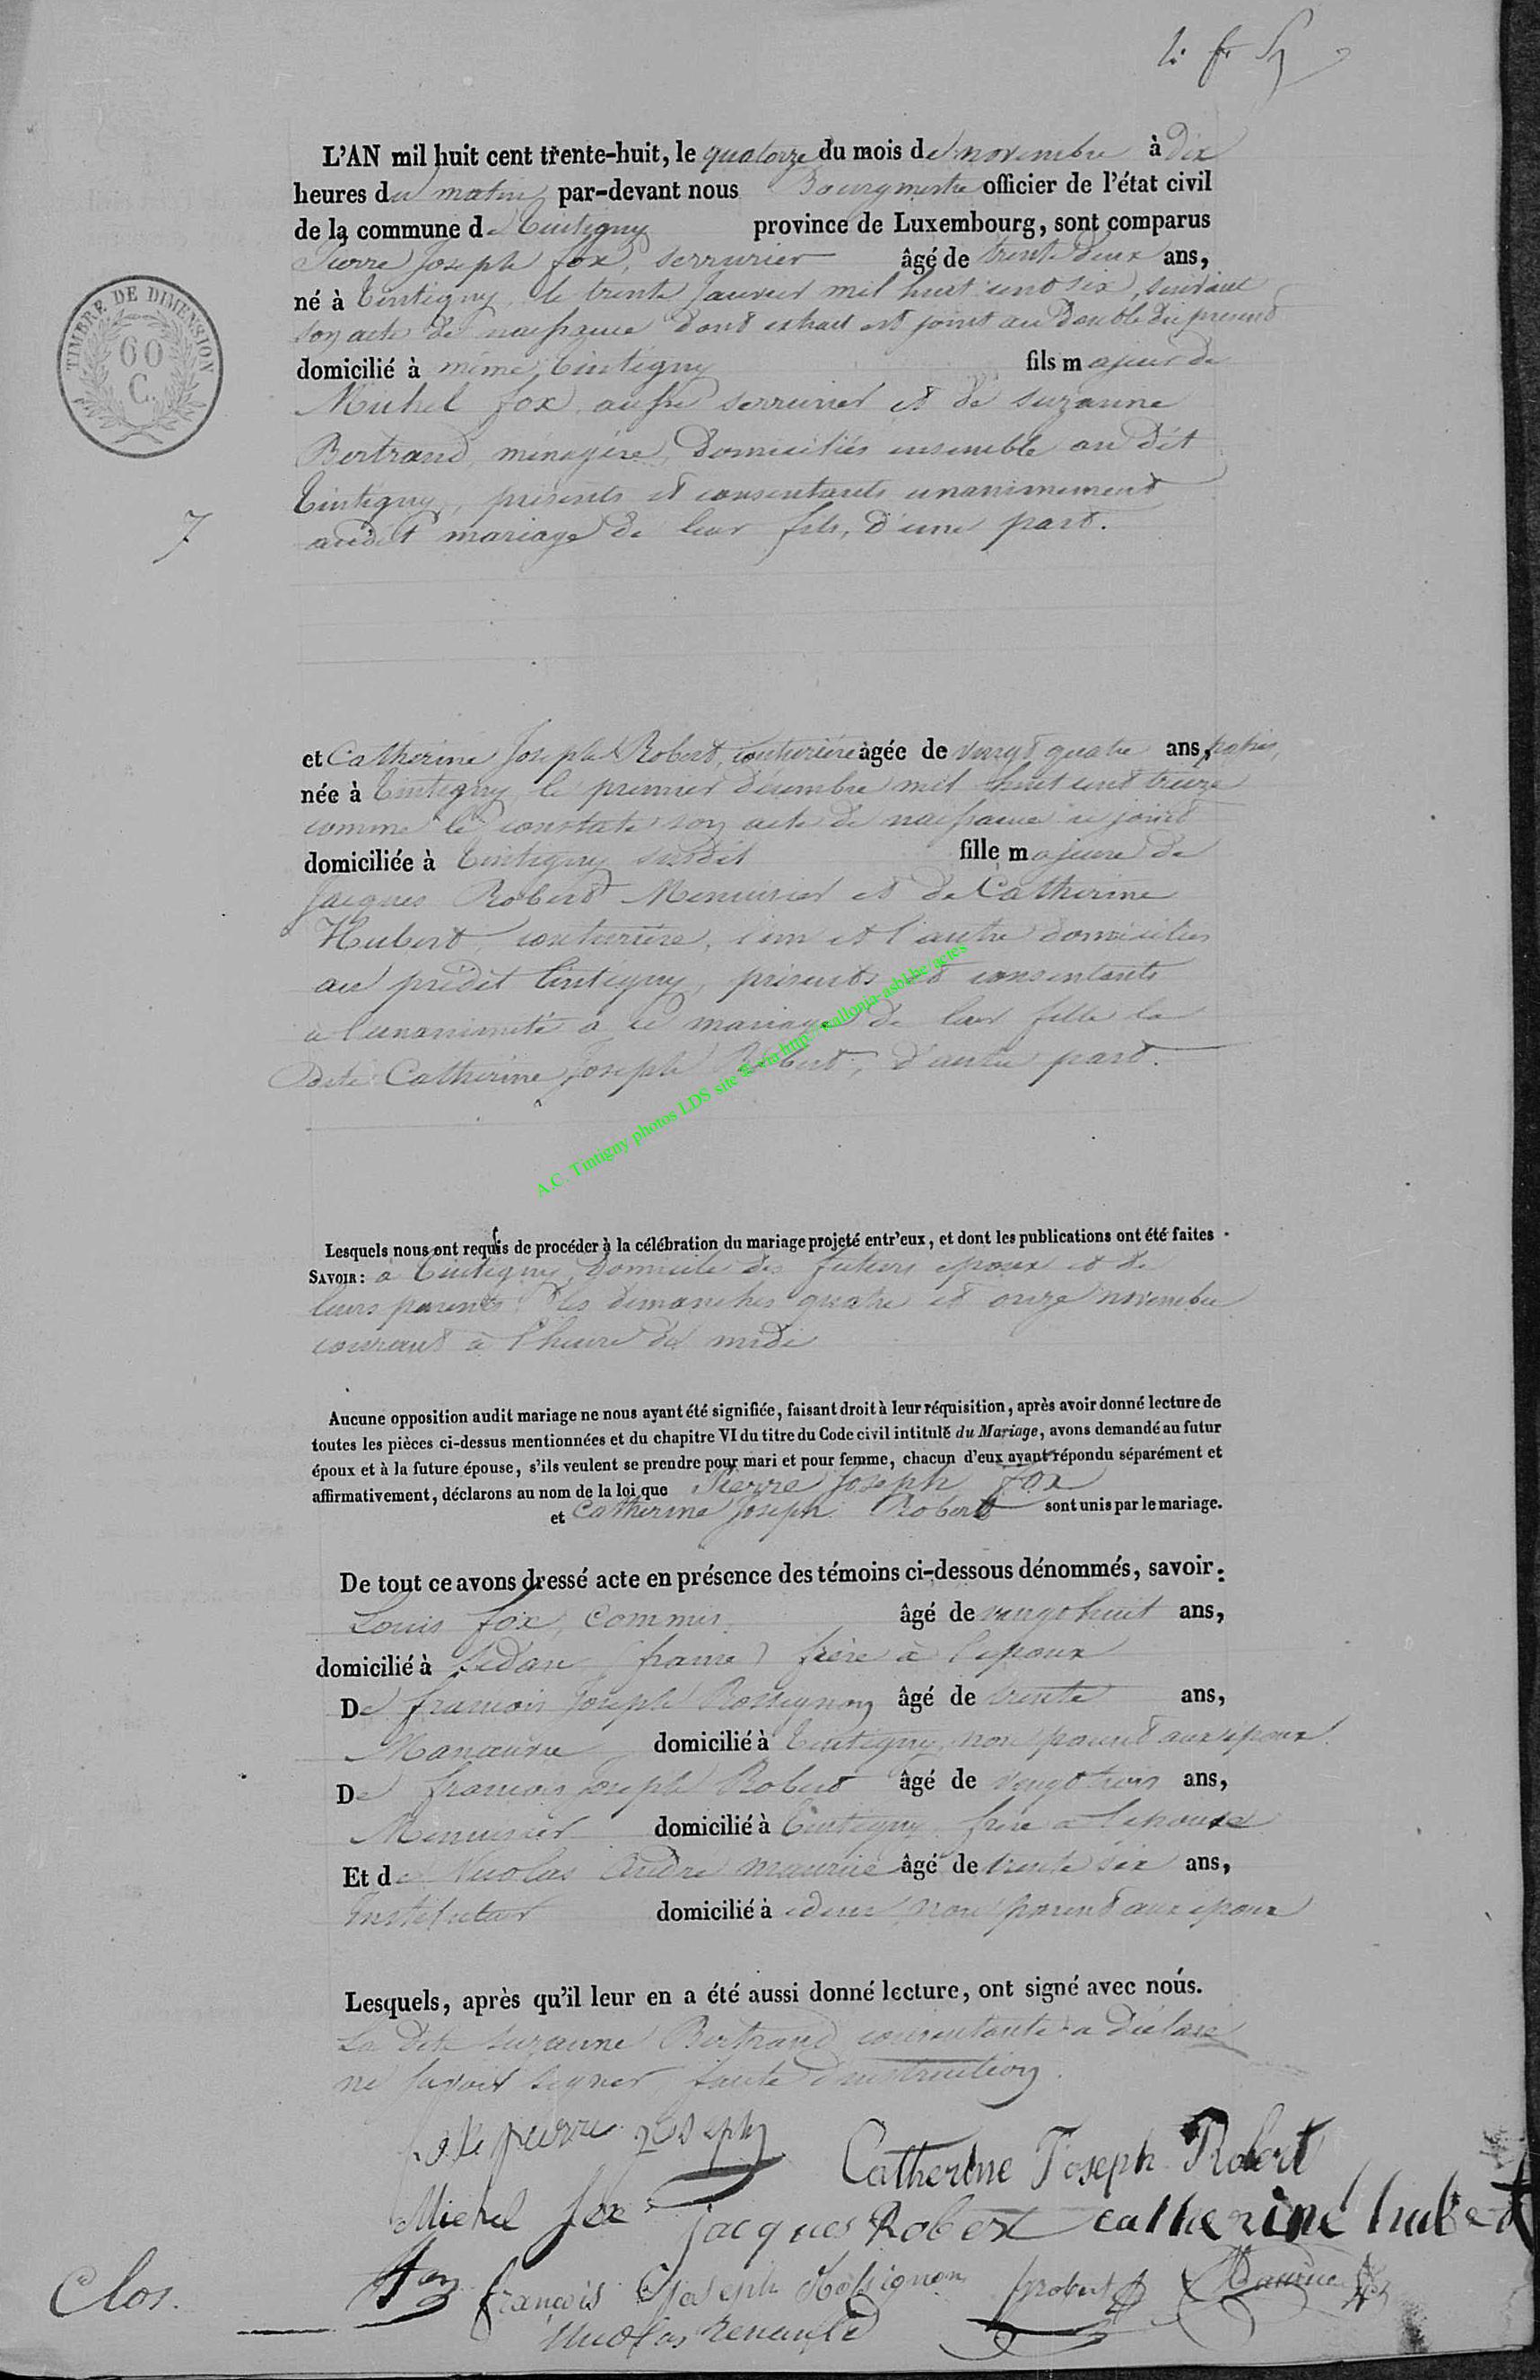 L'AN mil huit cent trente-huit, le quatorze du mois de novembre à dix
heures du matin, par-devant nous Bourgmestre officier de l'état civil
de la commune de Tintigny province de Luxembourg, sont comparus
Pierre Joseph fox, serrurier âgé de trente deux ans,
né à Tintigny, le trente Janvier mil huit cent six, suivant
son acte de naissance dont extrait est joint au double du présent
TIMBRE DE DIMENSION
60
C.
domicilié à même Tintigny fils majeur de
Michel fox, aussi serrurier et de suzanne
Bertrand, ménagère, Domiciliés ensemble au dit
Tintigny, présents et consentants unanimement
7
audit mariage de leur fils, d'une part.
et Catherine Joseph Robert, couturière âgée de vingt quatre ans,
née à Tintigny, le premier décembre mil huit cent treize
comme le constate son acte de naissance ci joint
domiciliée à Tintigny susdit fille majeure de
Jacques Robert Menuisier et de Catherine
Hubert, couturière, l'un et l'autre domiciliés
au prédit Tintigny, présents et consentants
à l'unanimité à ce mariage de leur fille la
dite Catherine Joseph Robert, d'autre part.
A.C. Tintigny photos LDS site & via http://wallonia-asbl.be/actes
Lesquels nous ont requis de procéder à la célébration du mariage projeté entr'eux, et dont les publications ont été faites
SAVOIR: à Tintigny, domicile des futurs époux et de
leurs parents les dimanches quatre et onze novembre
courant à l'heure de midi
Aucune opposition audit mariage ne nous ayant été signifiée, faisant droit à leur réquisition, après avoir donné lecture de
toutes les pièces ci-dessus mentionnées et du chapitre VI du titre du Code civil intitulé du Mariage, avons demandé au futur
époux et à la future épouse, s'ils veulent se prendre pour mari et pour femme, chacun d'eux ayant répondu séparément et
affirmativement, déclarons au nom de la loi que Pierre Joseph Fox
et Catherine Joseph Robert sont unis par le mariage.
De tout ce avons dressé acte en présence des témoins ci-dessous dénommés, savoir:
Louis fox, Commis âgé de vingt huit ans,
domicilié à Sédan (france) frère à l'époux
De francois Joseph Rossignon âgé de trente ans,
Manœuvre domicilié à Tintigny, non parent aux époux.
De francois Joseph Robert âgé de vingt trois ans,
Menuisier domicilié à Tintigny frère à l'épouse
Et de Nicolas André maurice âgé de trente six ans,
Instituteur domicilié à idem non parent aux époux
Lesquels, après qu'il leur en a été aussi donné lecture, ont signé avec nous.
La dite suzanne Bertrand consentante a déclaré
ne savoir signer, faute d'instruction.
pierre joseph
Catherine Joseph Robert
Michel fox jacques Robert catherine hubert
Clos.
françois Joseph Rossignon frobert Maurice
Nicolas Renauld